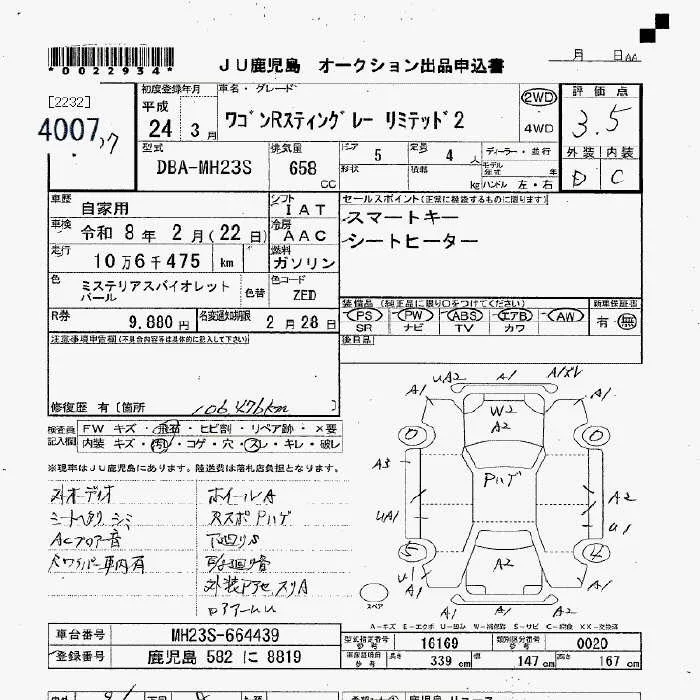 *0022934*
JU鹿児島 オークション出品申込書
月 日
[2232]
4007
初度登録年月
平成
24 3 月
車名・グレード
ワゴンRスティングレー リミテッド2
2WD
4WD
評 価 点
3.5
外装 内装
D C
型式
DBA-MH23S
排気量
658 CC
ドア 5
定員 4 人
形状
積載 kg
ディーラー・並行
モデル年式 年
ハンドル 左・右
車歴
自家用
シフト
IAT
車検
令和 8 年 2 月(22 日)
冷房
AAC
走行
10 万 6 千 475 km
燃料
ガソリン
色
ミステリアスバイオレット
パール
色替
色コード
ZED
R券
9,880 円
名変通知期限
2 月 28 日
セールスポイント(正常に機能するものに限ります)
スマートキー
シートヒーター
装備品 (純正品に限り○をつけてください)
PS PW ABS エアB AW
SR ナビ TV カワ
新車保証書
有・無
後日品
注意事項申告欄(不具合内容等は具体的に記入して下さい)
修復歴 有 [箇所
106,476km
検査員記入欄
FW キズ・飛石・ヒビ割・リペア跡・×要
内装 キズ・汚れ・コゲ・穴・スレ・キレ・破レ
※現車はJU鹿児島にあります。陸送費は落札店負担となります。
外オーディオ
ホイールA
シートヘタリ シミ
RスポPハゲ
ACブロアー音
下回りS
Rワイパー 車内有
外装Pアセ スリA
ロアアームU
A1 UA2 A1 A1ズレ A1
W2
A2
0 0
A3
Pハゲ
A2
UA1
U1
5 4
A2
U1
A1 A1 A2 A1 A1
スペア
A-キズ E-エクボ U-凹み W-補修跡 S-サビ C-腐食 XX-交換済
車台番号
MH23S-664439
登録番号
鹿児島 582 に 8819
型式指定番号 参考
16169
類別区分番号 参考
0020
車庫証明用 参考
長さ 339 cm
幅 147 cm
高さ 167 cm